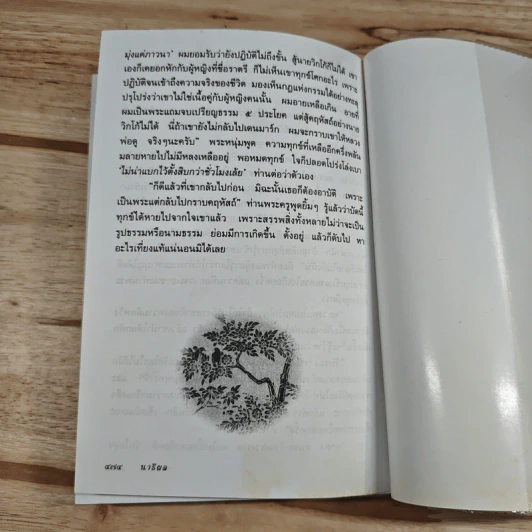 มุ่งแต่ภาวนา' ผมยอมรับว่ายังปฏิบัติไม่ถึงขั้น สู้นายวิกโก้ก็ไม่ได้ เขา
เองก็เคยอกหักกับผู้หญิงที่ชื่อราตรี ก็ไม่เห็นเขาทุกข์โศกอะไร เพราะ
ปฏิบัติจนเข้าถึงความจริงของชีวิต มองเห็นกฎแห่งกรรมได้อย่างทะลุ
ปรุโปร่งว่าเขาไม่ใช่เนื้อคู่กับผู้หญิงคนนั้น ผมอายเหลือเกิน อายที่
ผมเป็นพระแถมจบเปรียญธรรม ๕ ประโยค แต่สู้คฤหัสถ์อย่างนาย
วิกโก้ไม่ได้ นี่ถ้าเขายังไม่กลับไปเดนมาร์ก ผมจะกราบเขาให้หลวง
พ่อดู จริงๆนะครับ" พระหนุ่มพูด ความทุกข์ที่เหลืออีกครึ่งพลัน
มลายหายไปไม่มีหลงเหลืออยู่ พอหมดทุกข์ ใจก็ปลอดโปร่งโล่งเบา
'ไม่น่าแบกไว้ตั้งสิบกว่าชั่วโมงเลย' ท่านต่อว่าตัวเอง
"ก็ดีแล้วที่เขากลับไปก่อน มิฉะนั้นเธอก็ต้องอาบัติ เพราะ
เป็นพระแต่กลับไปกราบคฤหัสถ์" ท่านพระครูพูดยิ้มๆ รู้แล้วว่าบัดนี้
ทุกข์ได้หายไปจากใจเขาแล้ว เพราะสรรพสิ่งทั้งหลายไม่ว่าจะเป็น
รูปธรรมหรือนามธรรม ย่อมมีการเกิดขึ้น ตั้งอยู่ แล้วก็ดับไป หา
อะไรเที่ยงแท้แน่นอนมิได้เลย
๔๗๔ นารีผล